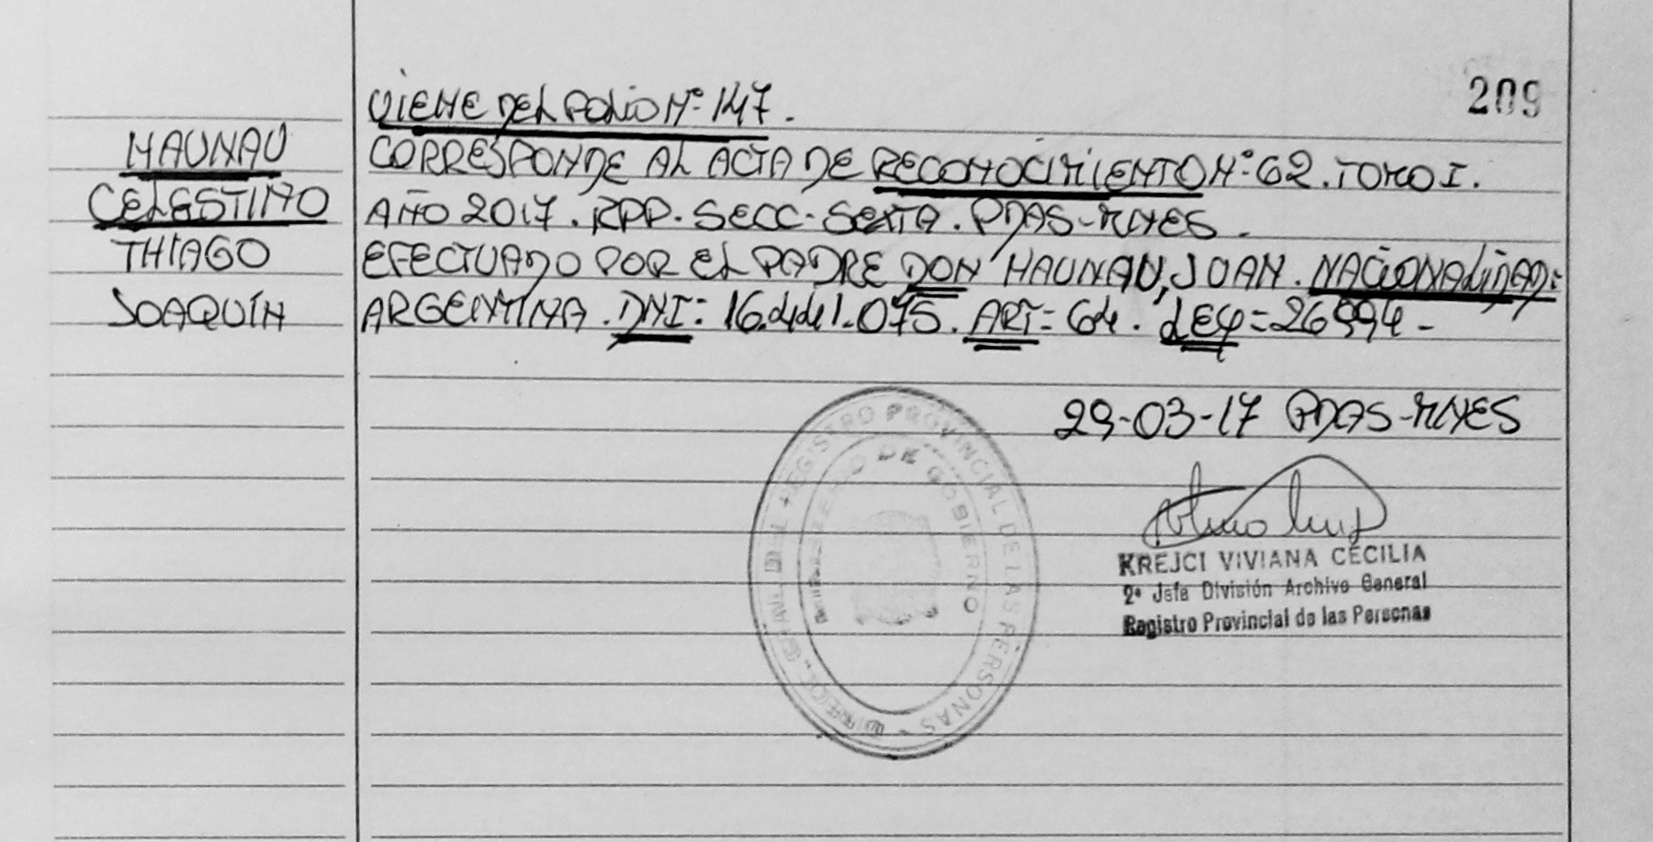 209
VIENE DEL FOLIO Nº 147.
HAUNAU
CELESTINO
THIAGO
JOAQUÍN
CORRESPONDE AL ACTA DE RECONOCIMIENTO Nº 62. TOMO I.
AÑO 2017. RPP. SECC. SEXTA. PDAS-MNES.
EFECTUADO POR EL PADRE DON HAUNAU, JUAN. NACIONALIDAD:
ARGENTINA. DNI: 16.441.075. ART= 64. LEY= 26994-
29-03-17 PDAS-MNES
KREJCI VIVIANA CECILIA
2ª Jefa División Archivo General
Registro Provincial de las Personas
DIRECC. GRAL. DEL REGISTRO PROVINCIAL DE LAS PERSONAS
MINISTERIO DE GOBIERNO